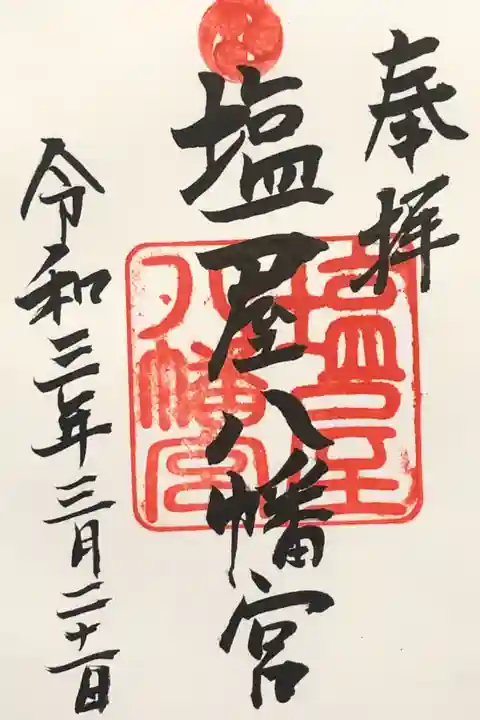 奉拝
塩屋八幡宮
塩屋
八幡宮
令和三年三月二十一日